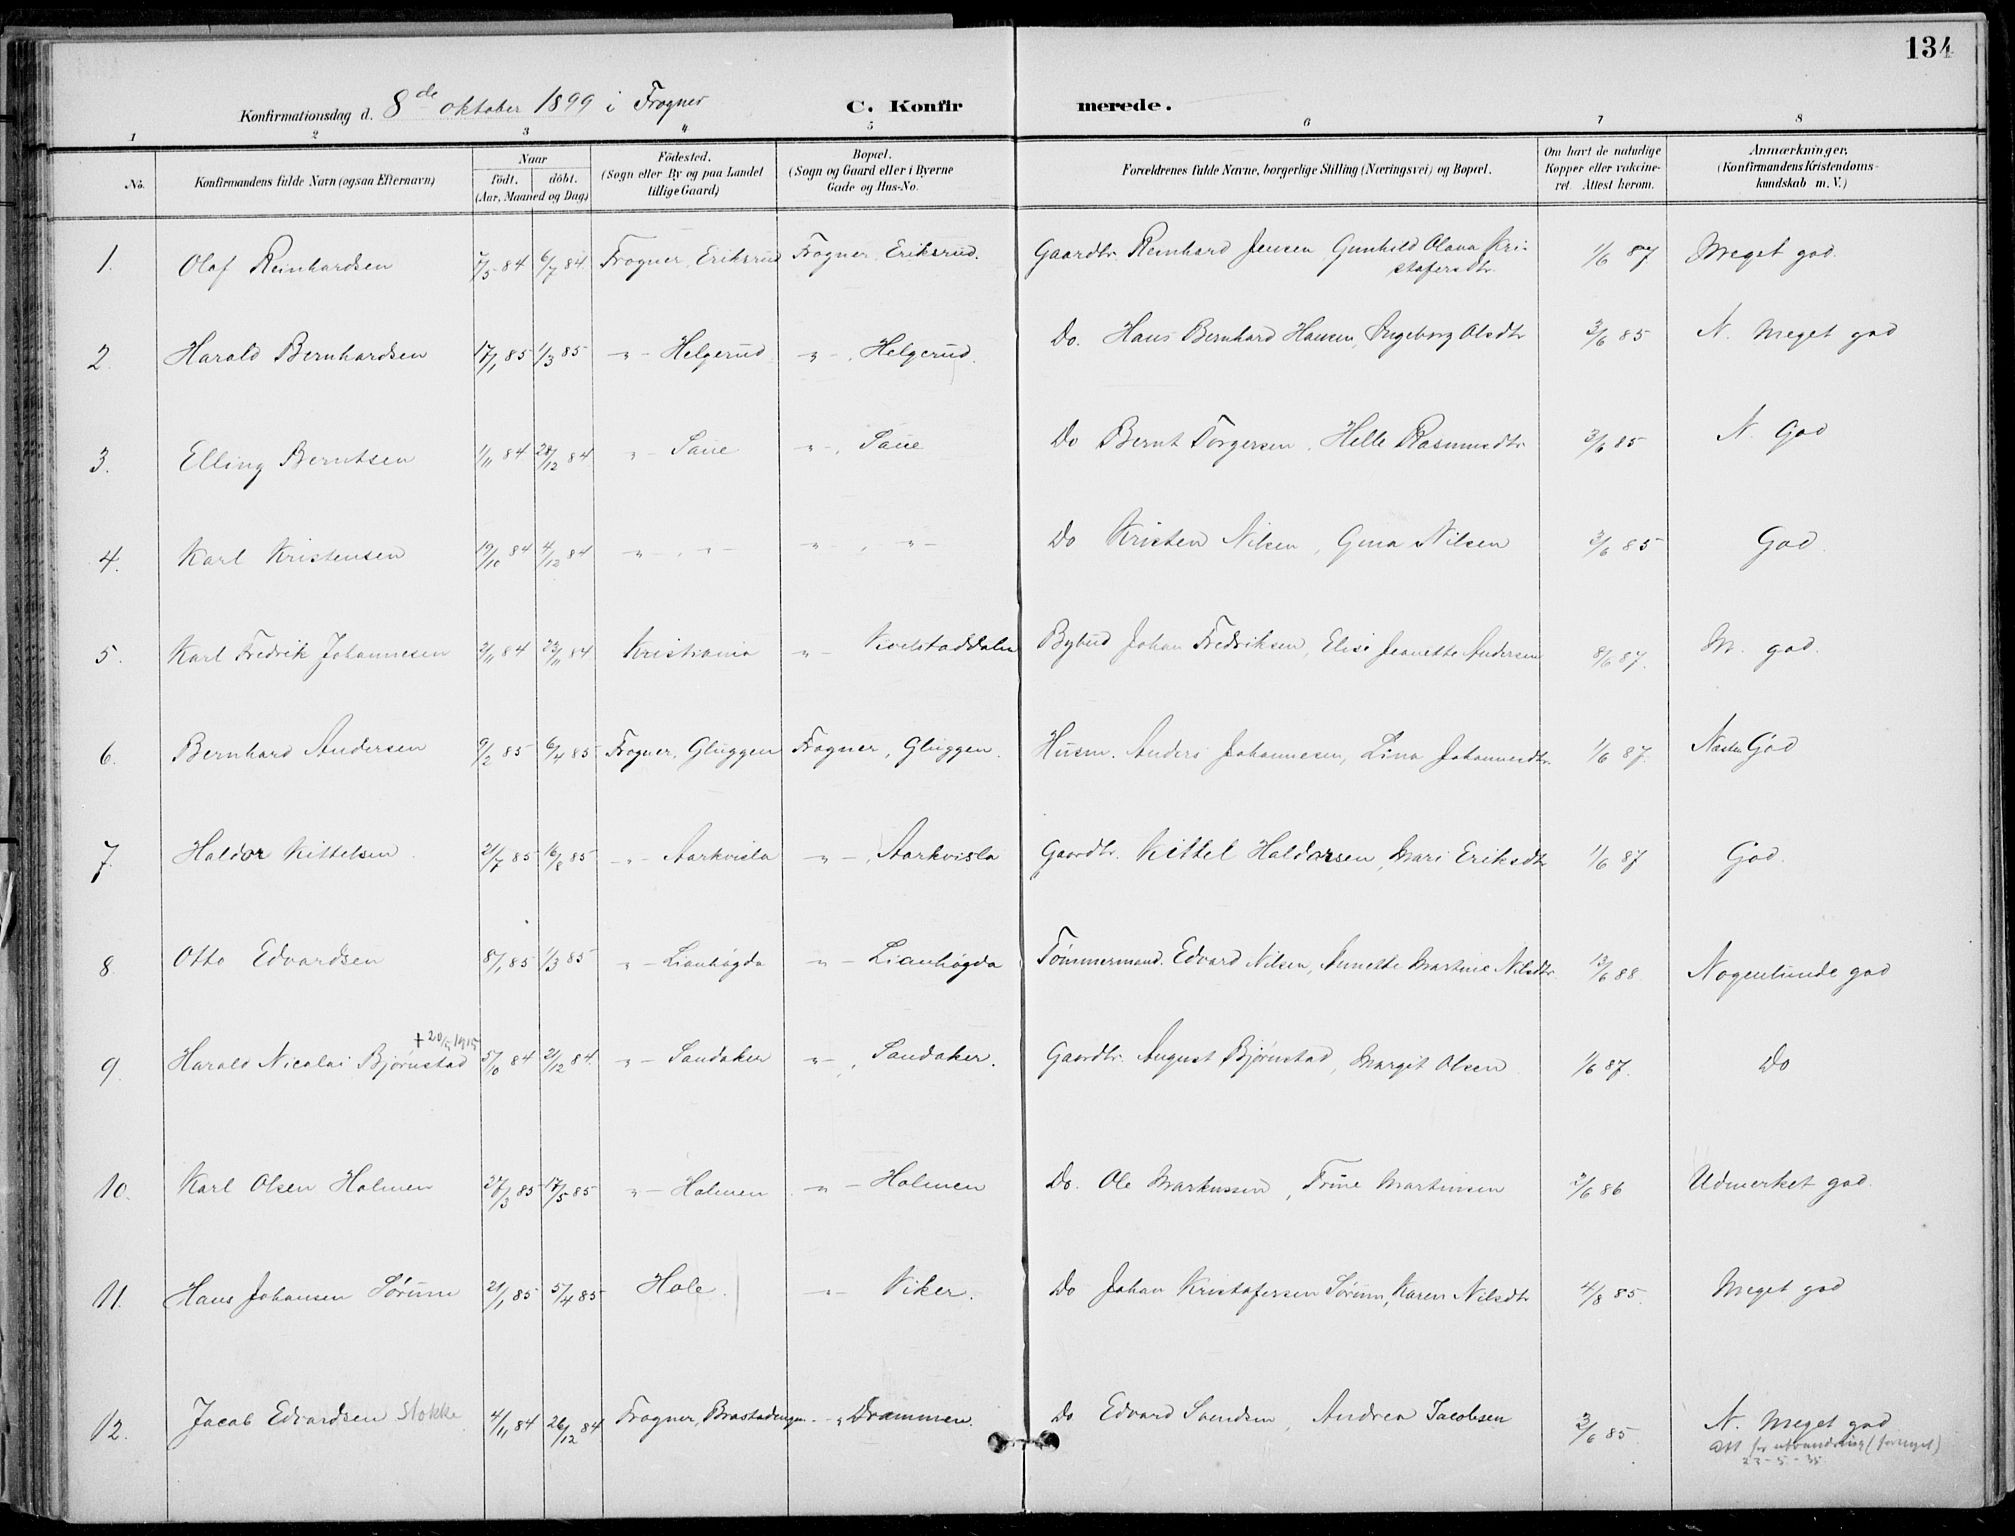 134
Konfirmationsdag d. 8de oktober 1899 i Frogner C. Konfirmerede.
1 2 3 4 5 6 7 8
No. Konfirmandens fulde Navn (ogsaa Efternavn) Naar födt. döbt. (Aar, Maaned og Dag) Födested. (Sogn eller By og paa Landet tillige Gaard) Bopæl. (Sogn og Gaard eller i Byerne Gade og Hus-No. Forældrenes fulde Navne, borgerlige Stilling (Næringsvei) og Bopæl. Om havt de naturlige Kopper eller vakcineret. Attest herom. Anmærkninger, (Konfirmandens Kristendomskundskab m. V.)
1. Olaf Reinhardsen 7/5 84 6/7 84 Frogner, Eriksrud Frogner, Eriksrud. Gaardbr. Reinhard Jensen, Gunhild Olava Kristofersdtr. 1/6 87 Meget god.
2. Harald Bernhardsen 17/1 85 1/3 85 " - Helgerud " - , Helgerud. Do. Hans Bernhard Hansen, Ingeborg Olsdtr 3/6 85 N. Meget god
3. Elling Berntsen 1/11 84 28/12 84 " - Saue " - , Saue Do Bernt Torgersen, Helle Rasmusdtr 3/6 85 N. God
4. Karl Kristensen 19/10 84 4/12 84 " - , " - " - , " - Do Kristen Nilsen, Gina Nilsen 3/6 85 God.
5. Karl Fredrik Johannesen 2/11 84 23/11 84 Kristiania " - Kvelstaddalen Bybud Johan Fredriksen, Elise Jeanette Andersen 8/6 87. M. god.
6. Bernhard Andersen 9/2 85 6/4 85 Frogner, Gluggen Frogner, Gluggen. Husm. Anders Johannesen, Lina Johannesdtr. 1/6 87. Næsten God
7. Haldor Kittelsen 21/7 85 16/8 85 " - Aarkvisla " - , Aarkvisla Gaardbr. Kittel Haldorsen, Mari Eriksdtr 1/6 87 God.
8. Otto Edvardsen 8/1 85 1/3 85 " - Lianhøgda " - Lianhøgda Tømmermand. Edvard Nilsen, Annette Martine Nilsdtr. 13/6 88. Nogenlunde god
9. Harald Nicolai Bjørnstad 5/10 84 21/12 84. " - Sandaker " - , Sandaker. Gaardbr. August Bjørnstad, Margit Olsen 1/6 87. Do
10. Karl Olsen Holmen 27/3 85 17/5 85 " - Holmen " - Holmen Do. Ole Markussen, Trine Martinsen 3/6 86 Udmerket god.
11. Hans Johansen Sørum 21/1 85 5/4 85 Hole. " - Viker. Do Johan Kristofersen Sørum, Karen Nilsdtr 4/8 85. Meget god
12. Jacob Edvardsen Stokke 4/11 84 26/12 84 Frogner, " - , Drammen. Do Edvard Svendsen, Andrea Jacobsen 3/6 85. N. Meget god
att for utvandring (fornyet)
23-5-35